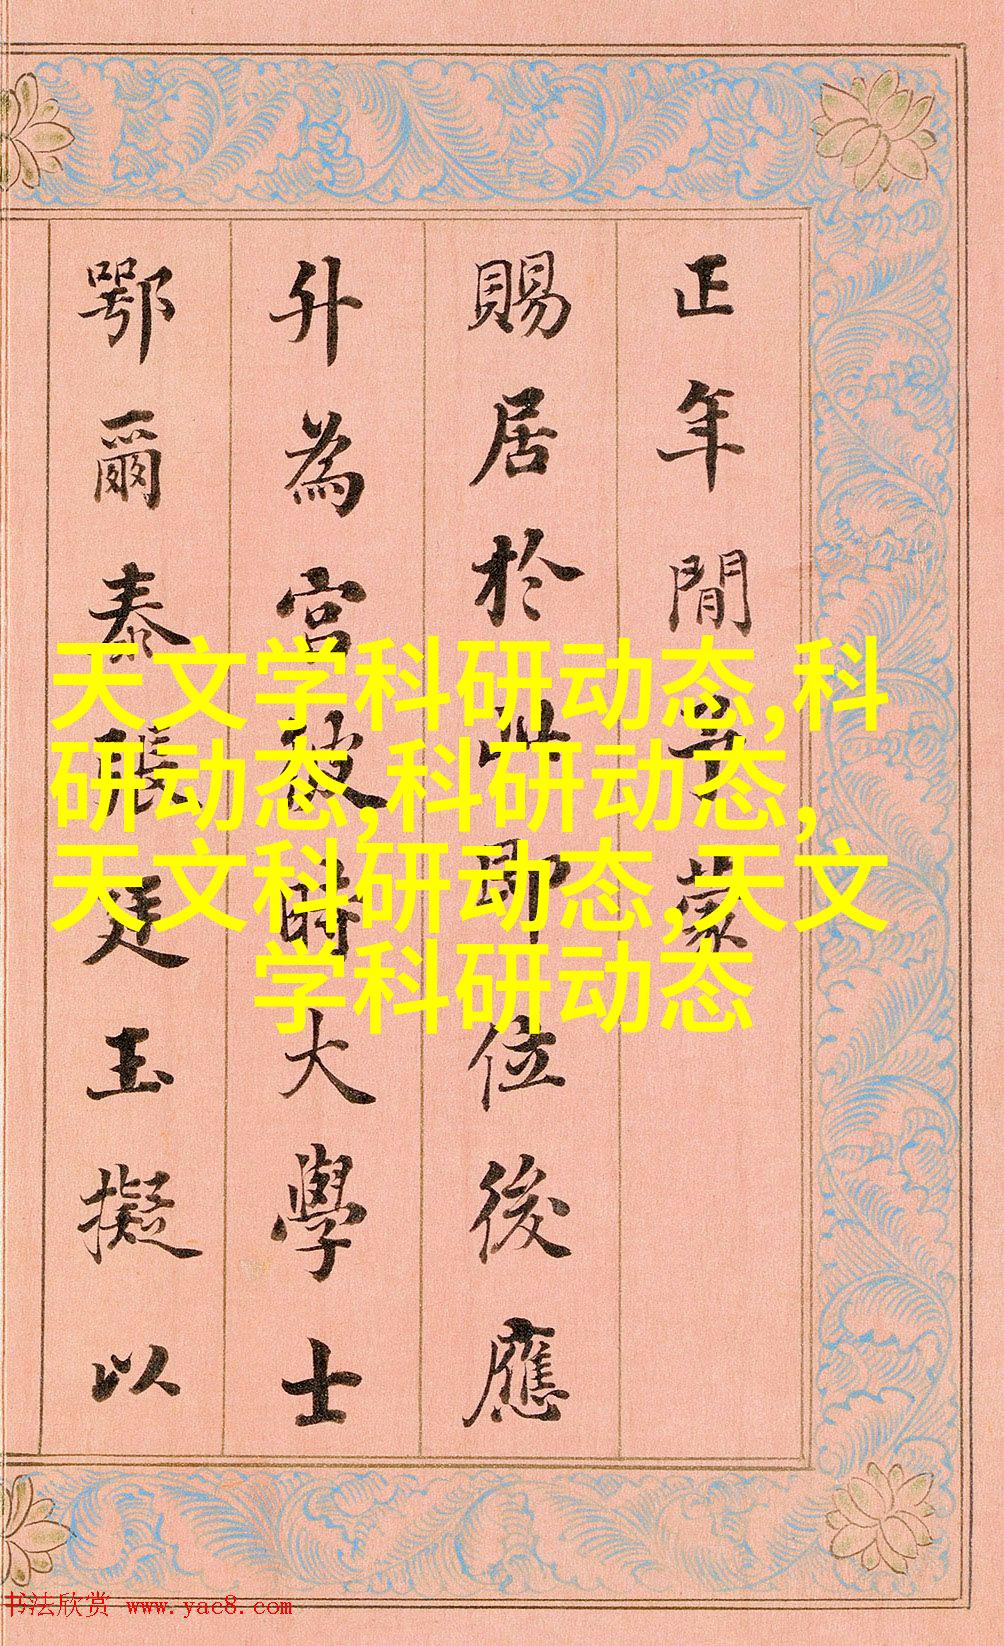 正年間予蒙
賜居於此即位後應
升為宮彼時大學士
鄂爾泰張廷玉擬以
天文学科研动态,科
研动态,科研动态,
天文科研动态,天文
学科研动态
书法欣赏 www.yac8.com